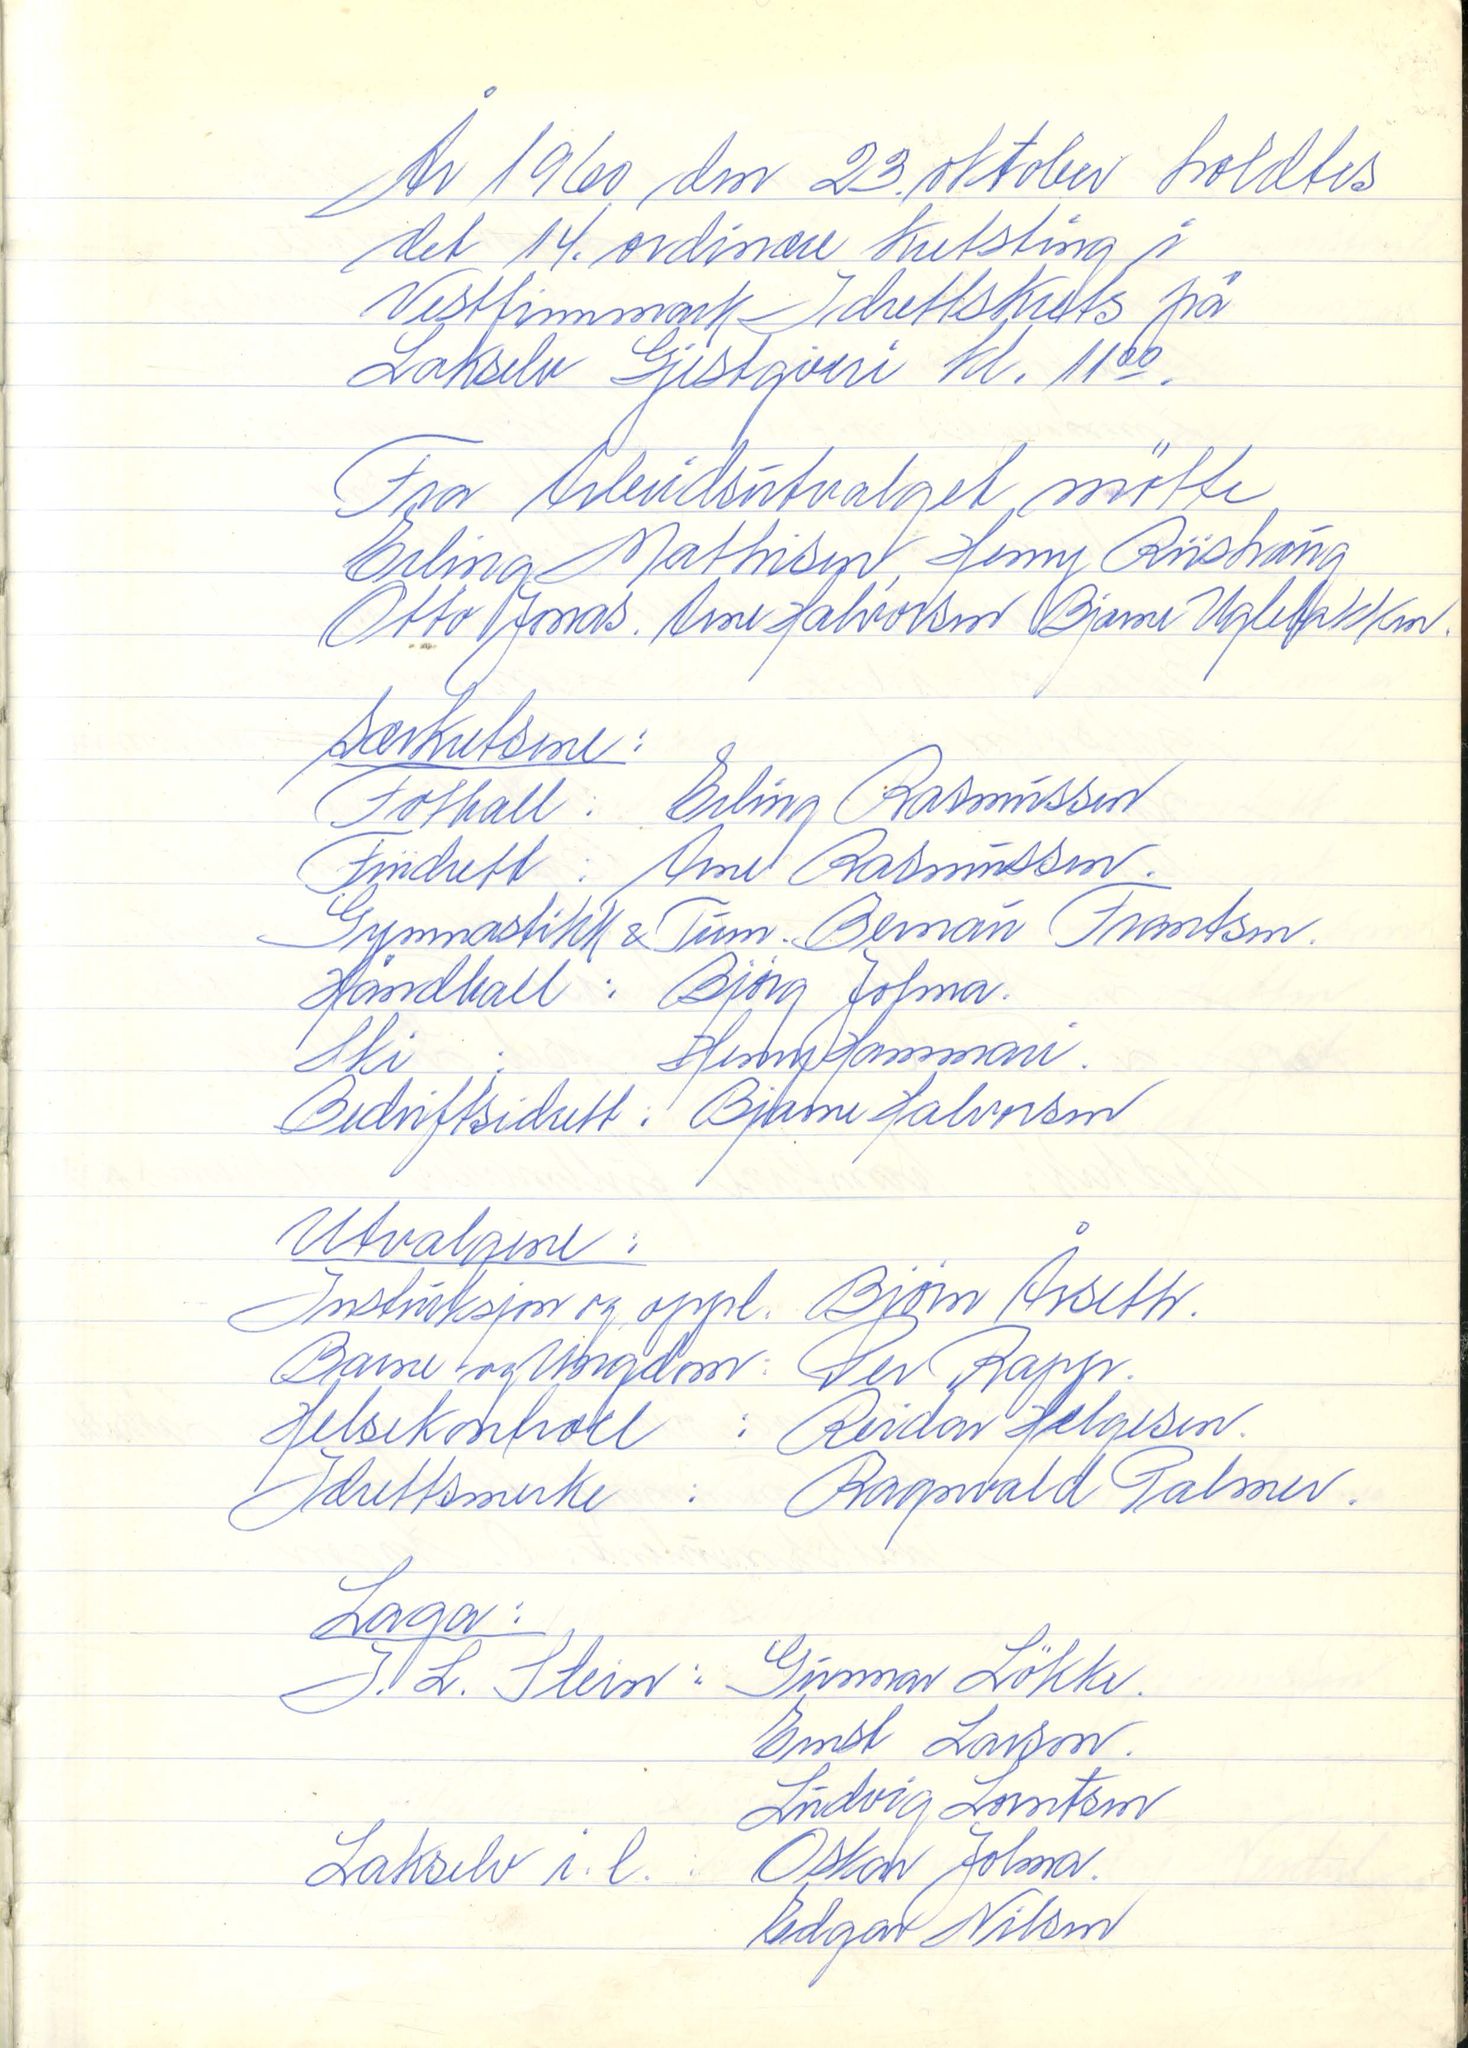 År 1960 den 23. oktober holdtes
det 14. ordinære kretsting i
Vestfinnmark Idrettskrets på
Lakselv Gjestgiveri kl. 11⁰⁰.
Fra Arbeidsutvalget møtte
Erling Mathisen, Henny
Otto Jonas. Arne Halvorsen Bjarne Uglebakken.
Særkretsene:
Fotball: Erling Rasmussen
Friidrett: Arne Rasmussen.
Gymnastikk & Turn. Bernau Frantsen.
Håndball: Bjørg Jolma.
Ski: Henry Hammari.
Bedriftsidrett: Bjarne Halvorsen
Utvalgene:
Instruksjon og oppl. Bjørn Årseth.
Barne og Ungdom: Per Rapp.
Helsekontroll: Reidar Helgesen.
Idrettsmerke: Ragnvald Palmer.
Laga:
I. L. Stein: Gunnar Løkke.
Ernst Larson.
Ludvig Lorntsen
Lakselv i.l.: Oskar Jolma.
Edgar Nilsen